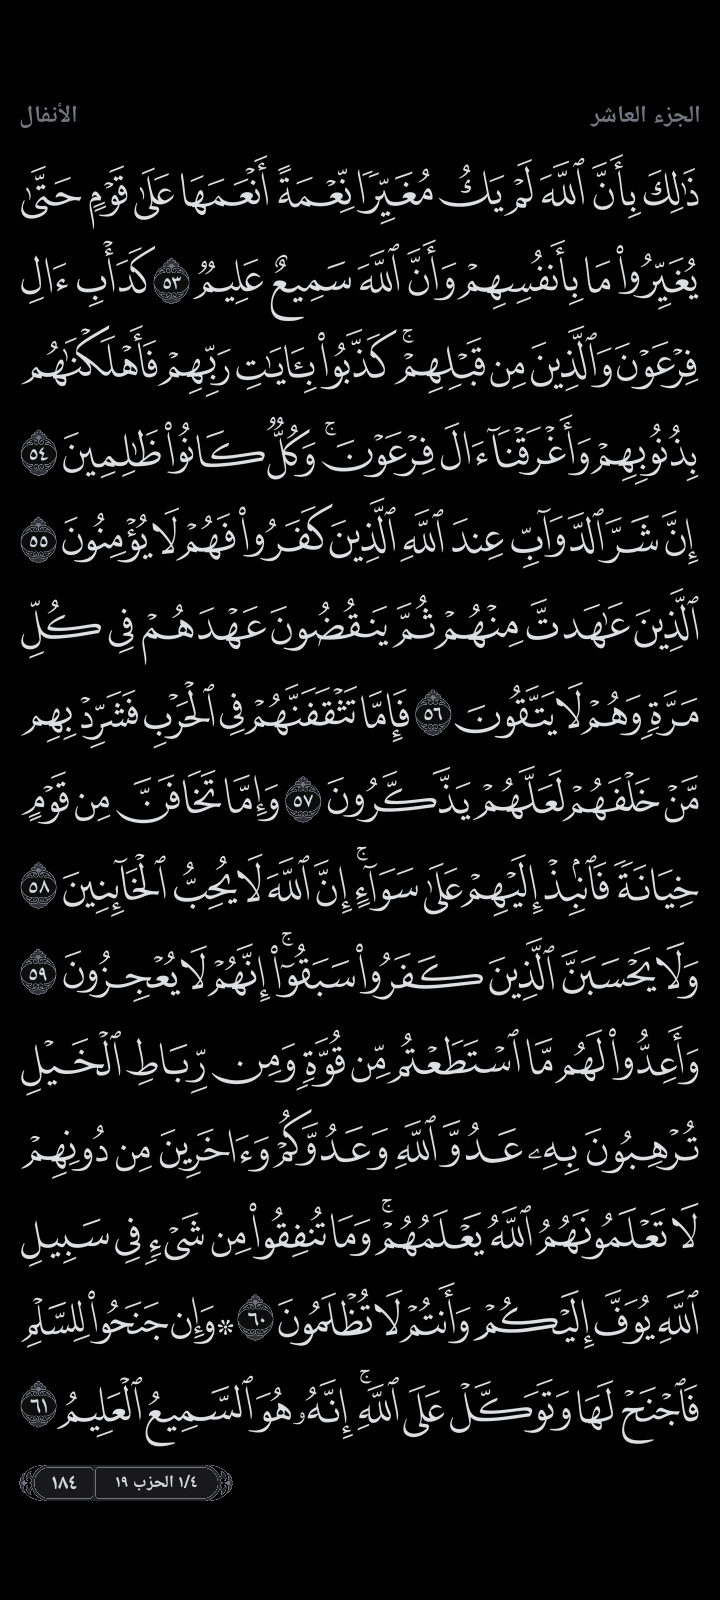 الجزء العاشر
الأنفال
ذَٰلِكَ بِأَنَّ ٱللَّهَ لَمْ يَكُ مُغَيِّرًا نِّعْمَةً أَنْعَمَهَا عَلَىٰ قَوْمٍ حَتَّىٰ
يُغَيِّرُوا۟ مَا بِأَنفُسِهِمْ وَأَنَّ ٱللَّهَ سَمِيعٌ عَلِيمٌ ٥٣ كَدَأْبِ ءَالِ
فِرْعَوْنَ وَٱلَّذِينَ مِن قَبْلِهِمْ ۚ كَذَّبُوا۟ بِـَٔايَـٰتِ رَبِّهِمْ فَأَهْلَكْنَـٰهُم
بِذُنُوبِهِمْ وَأَغْرَقْنَآ ءَالَ فِرْعَوْنَ ۚ وَكُلٌّ كَانُوا۟ ظَـٰلِمِينَ ٥٤
إِنَّ شَرَّ ٱلدَّوَآبِّ عِندَ ٱللَّهِ ٱلَّذِينَ كَفَرُوا۟ فَهُمْ لَا يُؤْمِنُونَ ٥٥
ٱلَّذِينَ عَـٰهَدتَّ مِنْهُمْ ثُمَّ يَنقُضُونَ عَهْدَهُمْ فِى كُلِّ
مَرَّةٍ وَهُمْ لَا يَتَّقُونَ ٥٦ فَإِمَّا تَثْقَفَنَّهُمْ فِى ٱلْحَرْبِ فَشَرِّدْ بِهِم
مَّنْ خَلْفَهُمْ لَعَلَّهُمْ يَذَّكَّرُونَ ٥٧ وَإِمَّا تَخَافَنَّ مِن قَوْمٍ
خِيَانَةً فَٱنۢبِذْ إِلَيْهِمْ عَلَىٰ سَوَآءٍ ۚ إِنَّ ٱللَّهَ لَا يُحِبُّ ٱلْخَآئِنِينَ ٥٨
وَلَا يَحْسَبَنَّ ٱلَّذِينَ كَفَرُوا۟ سَبَقُوٓا۟ ۚ إِنَّهُمْ لَا يُعْجِزُونَ ٥٩
وَأَعِدُّوا۟ لَهُم مَّا ٱسْتَطَعْتُم مِّن قُوَّةٍ وَمِن رِّبَاطِ ٱلْخَيْلِ
تُرْهِبُونَ بِهِۦ عَدُوَّ ٱللَّهِ وَعَدُوَّكُمْ وَءَاخَرِينَ مِن دُونِهِمْ
لَا تَعْلَمُونَهُمُ ٱللَّهُ يَعْلَمُهُمْ ۚ وَمَا تُنفِقُوا۟ مِن شَىْءٍ فِى سَبِيلِ
ٱللَّهِ يُوَفَّ إِلَيْكُمْ وَأَنتُمْ لَا تُظْلَمُونَ ٦٠ ۞ وَإِن جَنَحُوا۟ لِلسَّلْمِ
فَٱجْنَحْ لَهَا وَتَوَكَّلْ عَلَى ٱللَّهِ ۚ إِنَّهُۥ هُوَ ٱلسَّمِيعُ ٱلْعَلِيمُ ٦١
١/٤ الحزب ١٩
١٨٤